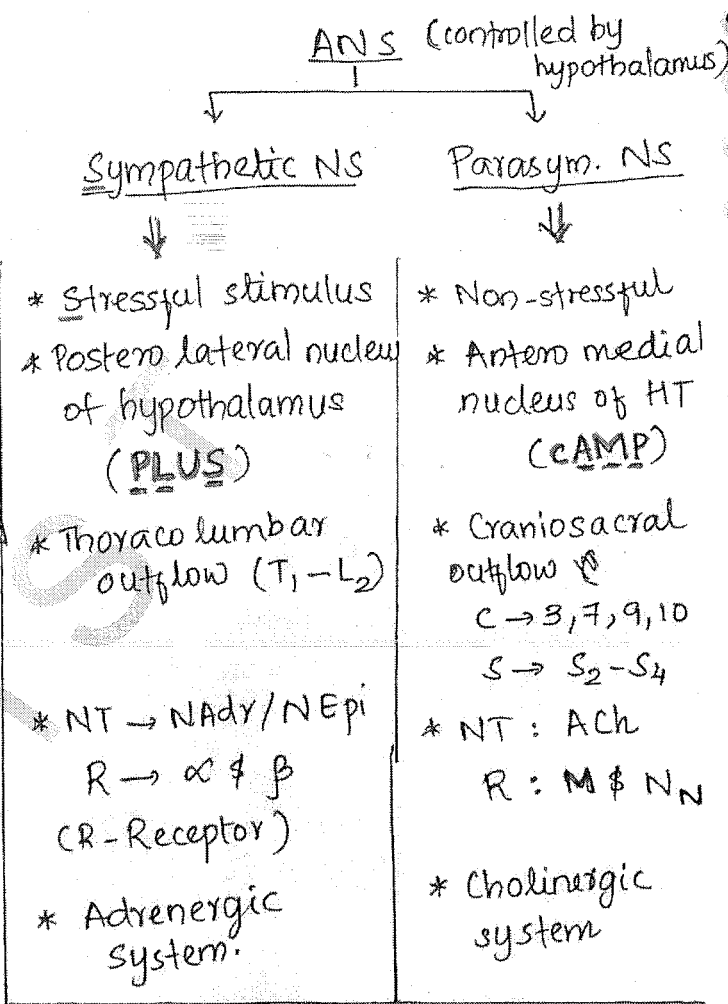 ANS (controlled by
hypothalamus)
Sympathetic NS
* Stressful stimulus
* Postero lateral nucleus
of hypothalamus
(PLUS)
* Thoraco lumbar
outflow (T₁-L₂)
* NT → NAdr/NEpi
R → α & β
(R-Receptor)
* Adrenergic
system.
Parasym. NS
* Non-stressful
* Antero medial
nucleus of HT
(cAMP)
* Craniosacral
outflow
C → 3,7,9,10
S → S₂-S₄
* NT : ACh
R : M & N_N
* Cholinergic
system